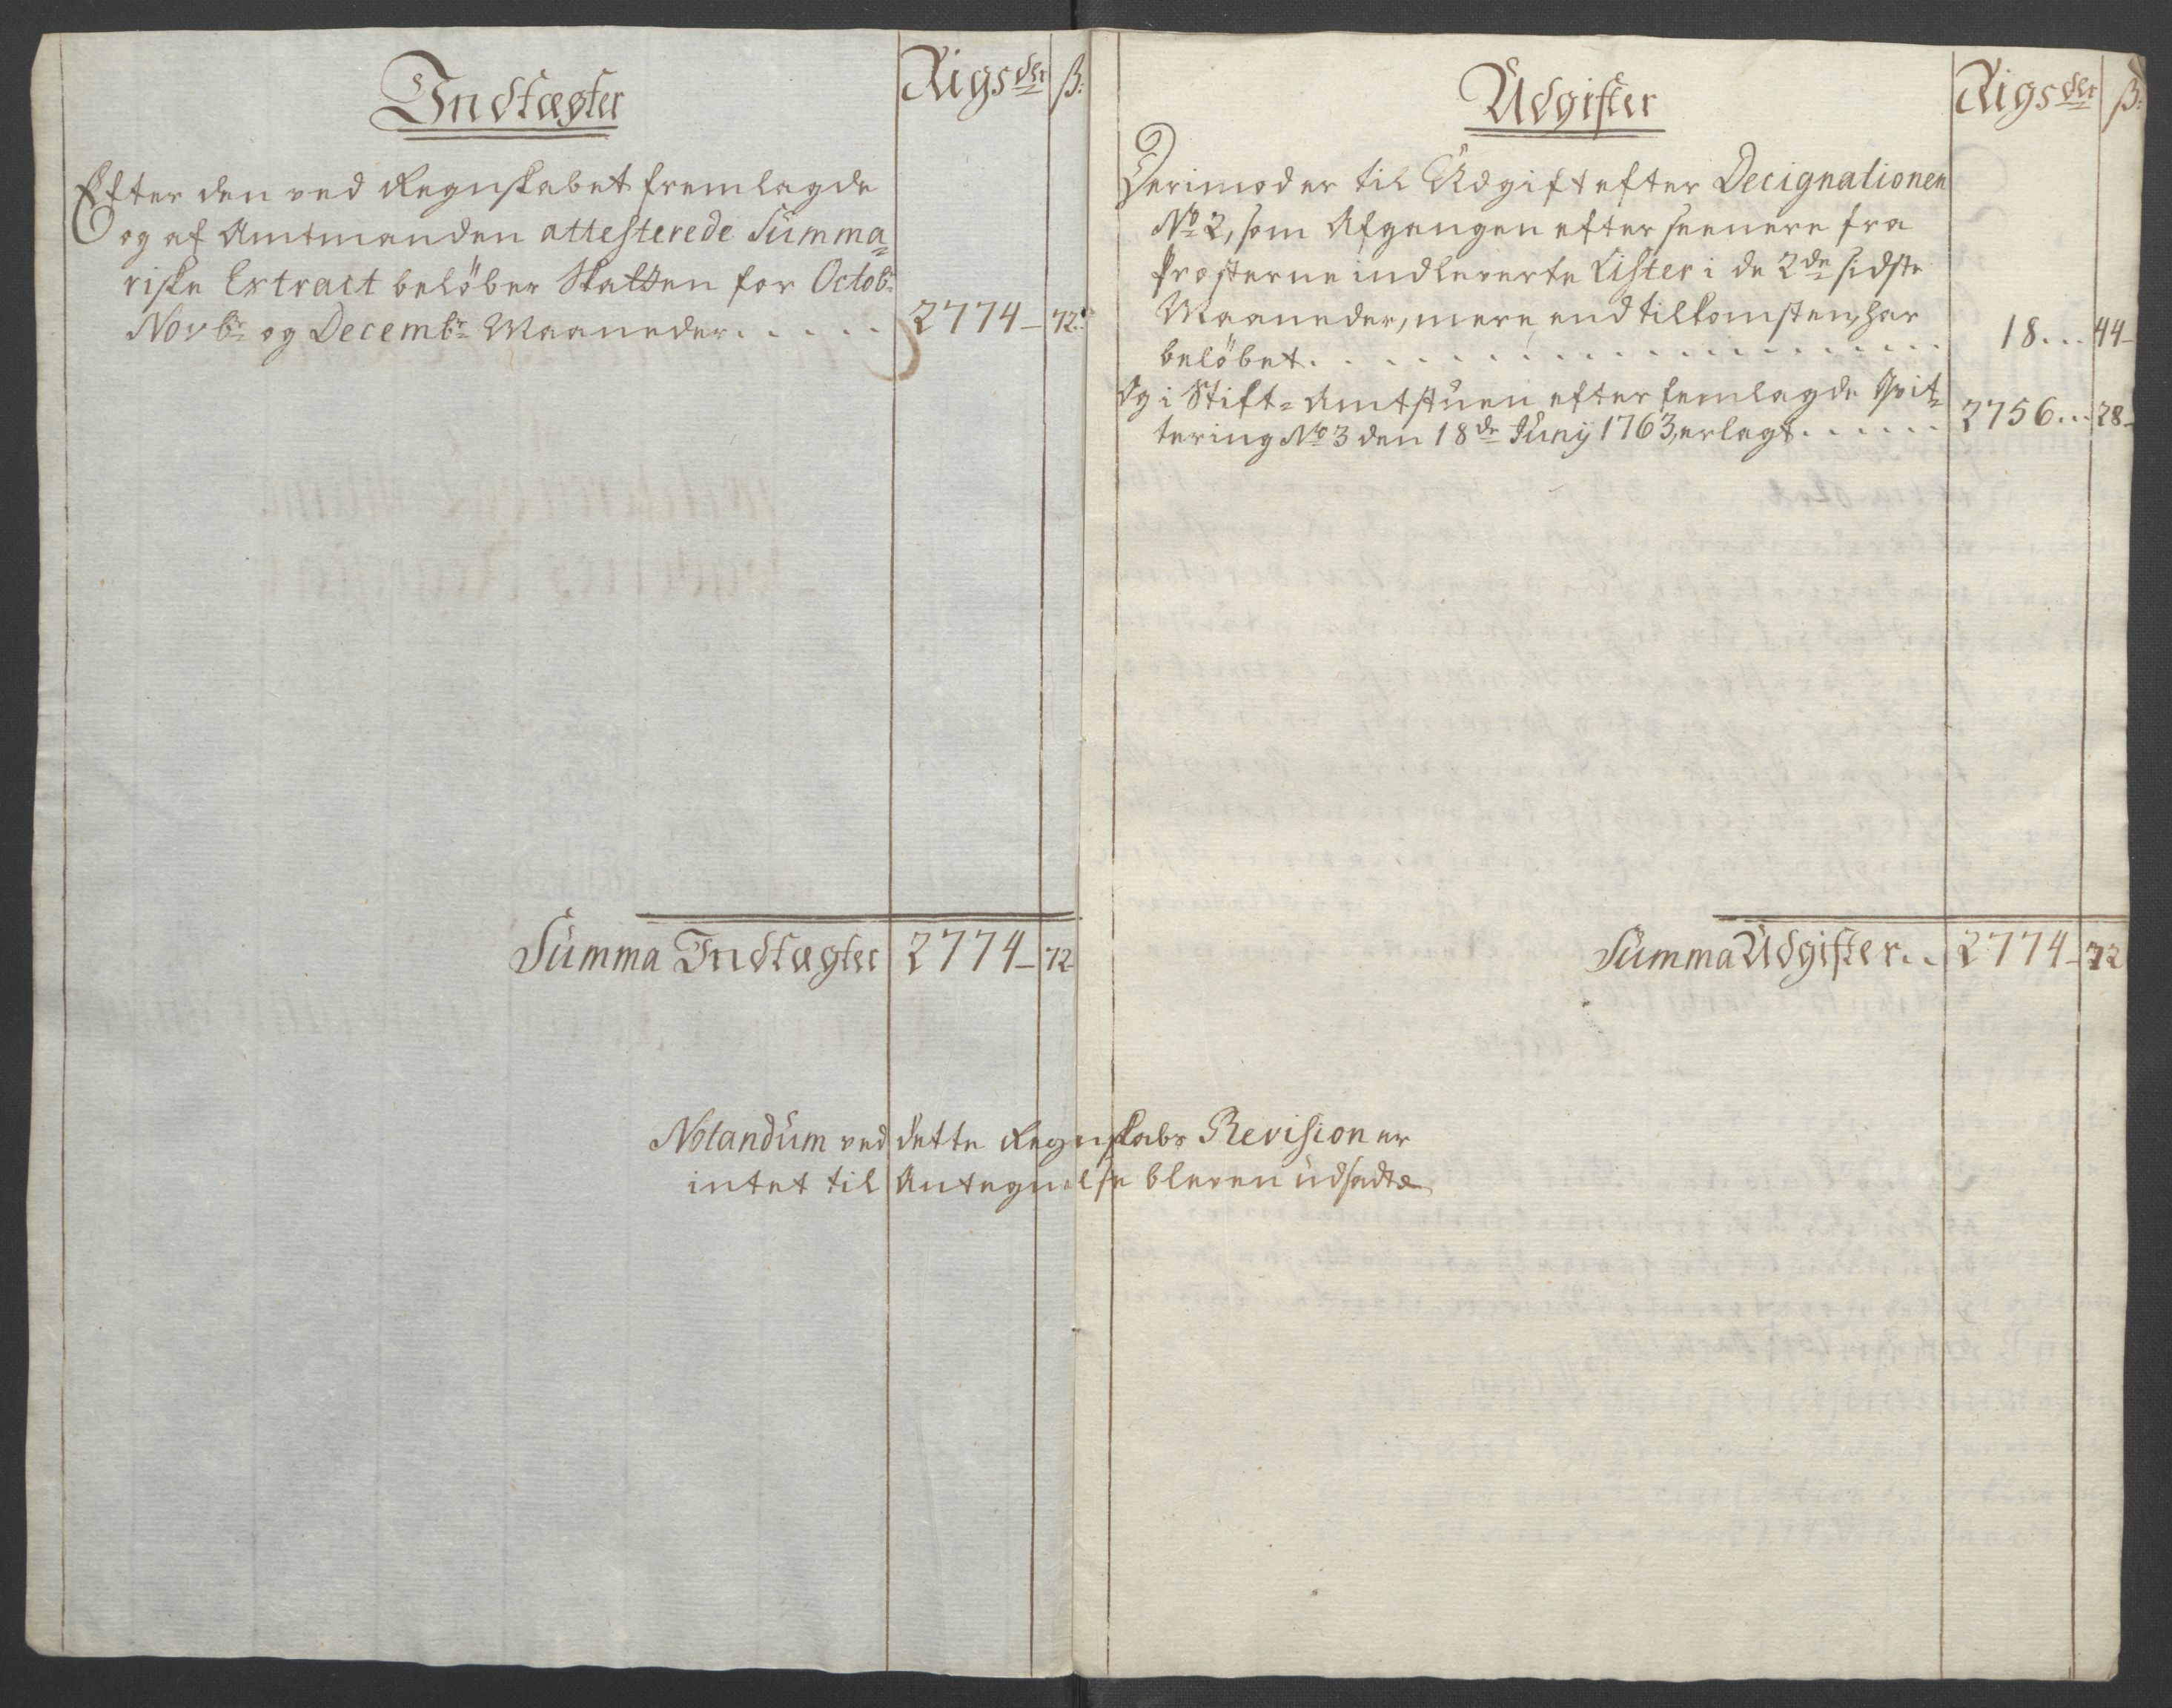 Indtægter
Rigsdlr ß:
Efter den ved Regnskabet fremlagde
og af Amtmanden attesterede Summa=
riske Extract belöber Skatten for Octobr
Novbr og Decembr Maaneder..... 2774– 72.
Summa Indtægter 2774– 72
Udgifter
Rigsdlr ß:
Derimod er til Udgift efter Decignationen
No 2, som Afgangen efter seenere fra
Præsterne indleverte Lister i de 2de sidste
Maaneder, mere end tilkomsten, har
belöbet. 18... 44–
Og i Stift=Amtstuen efter femlagde Qvit=
tering No 3 den 18de Junij 1763, erlagt...... 2756... 28–
Summa Udgifter.. 2774– 72
Notandum ved dette Regnskabs Revision er
intet til Antegnelse bleven udsadt